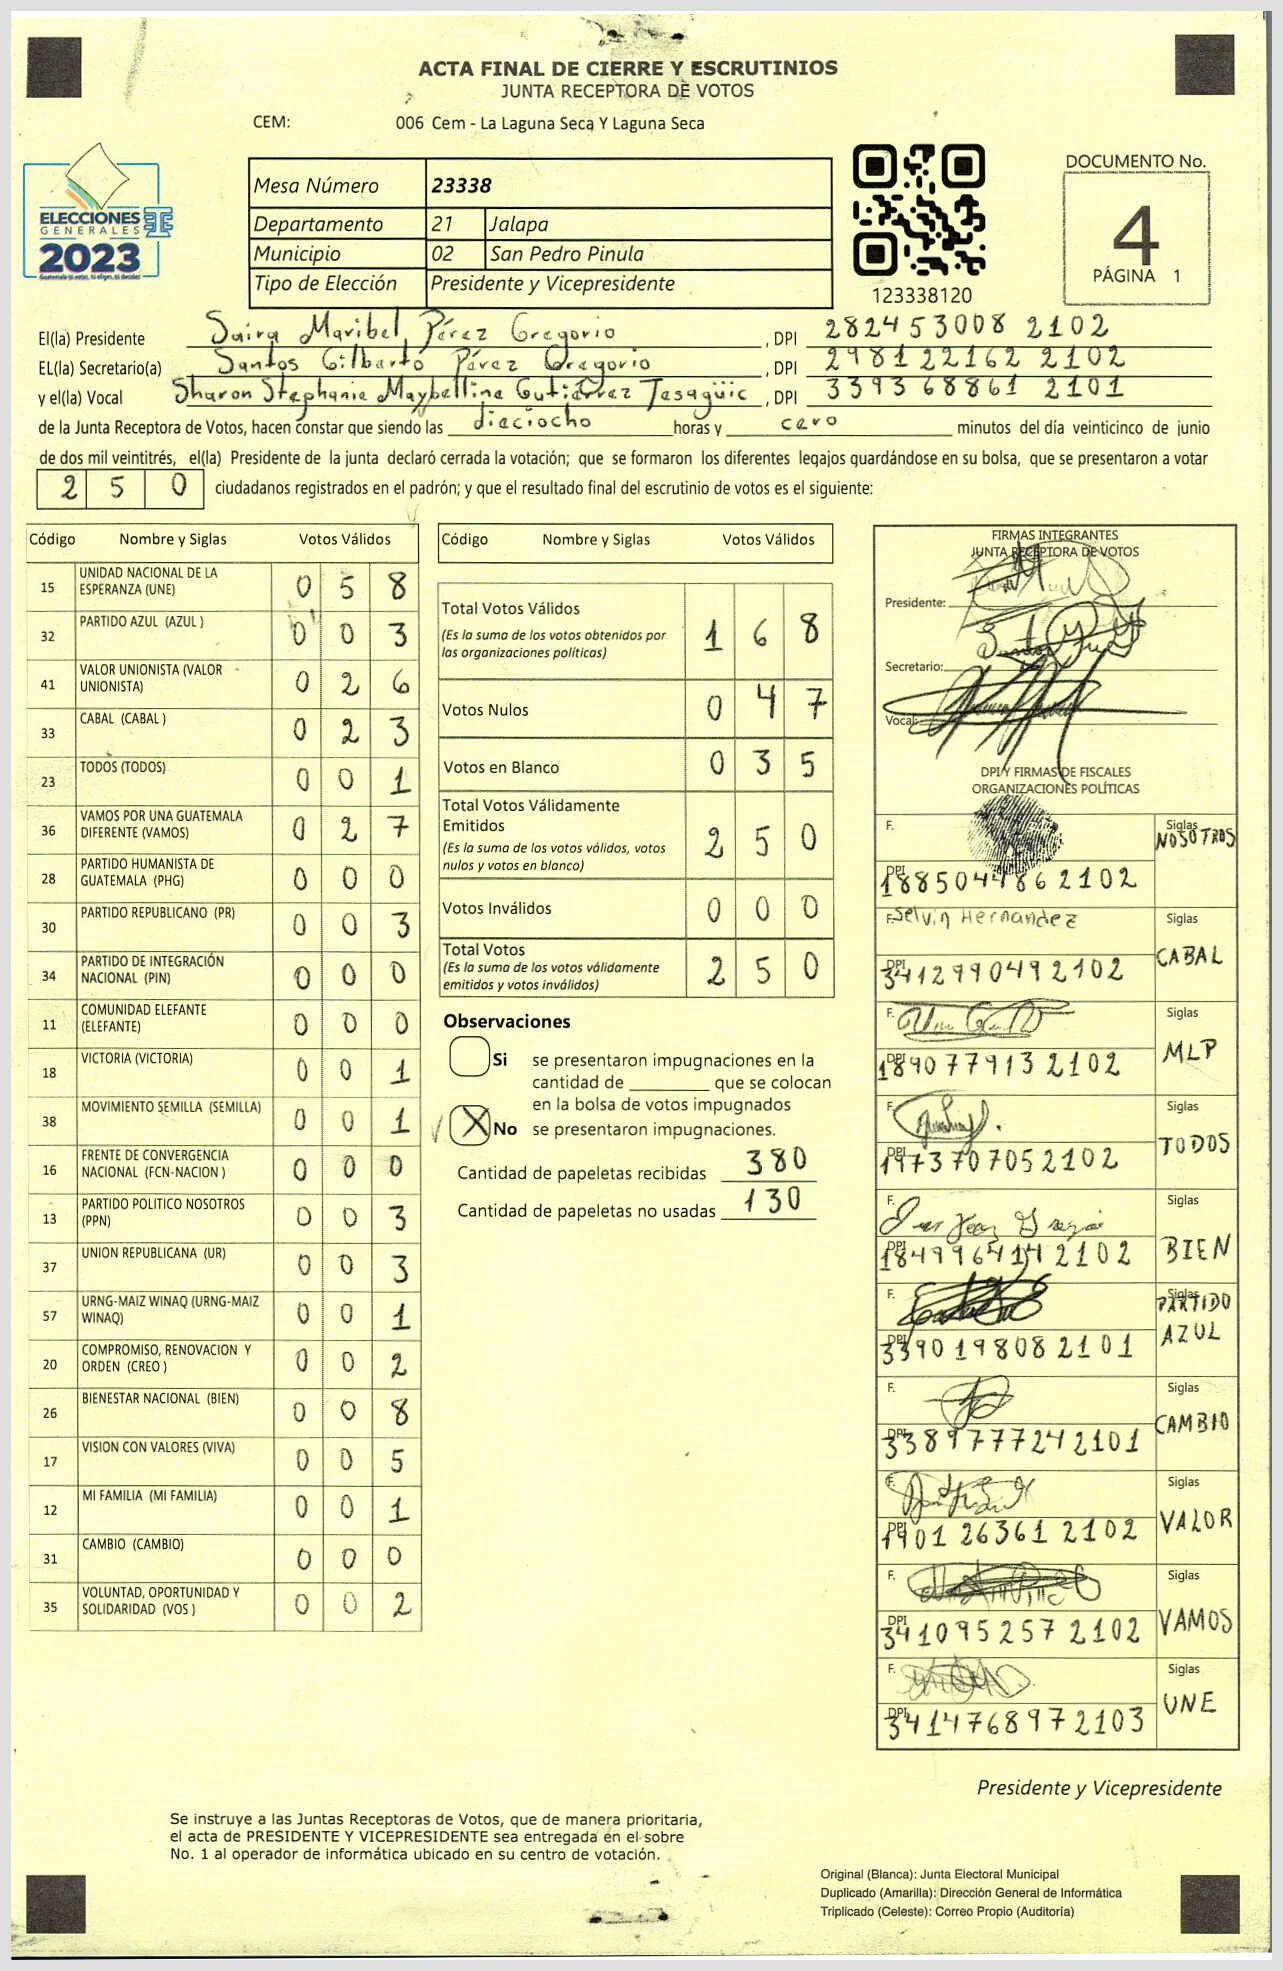 ACTA FINAL DE CIERRE Y ESCRUTINIOS
JUNTA RECEPTORA DE VOTOS
CEM: 006 Cem - La Laguna Seca Y Laguna Seca
ELECCIONES
GENERALES
2023
Mesa Número 23338
Departamento 21 Jalapa
Municipio 02 San Pedro Pinula
Tipo de Elección Presidente y Vicepresidente
123338120
DOCUMENTO No.
4
PÁGINA 1
El(la) Presidente Saira Maribel Pérez Gregorio, DPI 282453008 2102
EL(la) Secretario(a) Santos Gilberto Pérez Gregorio, DPI 298122162 2102
y el(la) Vocal Sharon Stephanie Maybelline Gutiérrez Tasagüic, DPI 339368861 2101
de la Junta Receptora de Votos, hacen constar que siendo las dieciocho horas y cero minutos del día veinticinco de junio
de dos mil veintitrés, el(la) Presidente de la junta declaró cerrada la votación; que se formaron los diferentes legajos guardándose en su bolsa, que se presentaron a votar
2 5 0 ciudadanos registrados en el padrón; y que el resultado final del escrutinio de votos es el siguiente:
Código Nombre y Siglas Votos Válidos
15 UNIDAD NACIONAL DE LA ESPERANZA (UNE) 0 5 8
32 PARTIDO AZUL (AZUL ) 0 0 3
41 VALOR UNIONISTA (VALOR UNIONISTA) 0 2 6
33 CABAL (CABAL ) 0 2 3
23 TODOS (TODOS) 0 0 1
36 VAMOS POR UNA GUATEMALA DIFERENTE (VAMOS) 0 2 7
28 PARTIDO HUMANISTA DE GUATEMALA (PHG) 0 0 0
30 PARTIDO REPUBLICANO (PR) 0 0 3
34 PARTIDO DE INTEGRACIÓN NACIONAL (PIN) 0 0 0
11 COMUNIDAD ELEFANTE (ELEFANTE) 0 0 0
18 VICTORIA (VICTORIA) 0 0 1
38 MOVIMIENTO SEMILLA (SEMILLA) 0 0 1
16 FRENTE DE CONVERGENCIA NACIONAL (FCN-NACION ) 0 0 0
13 PARTIDO POLITICO NOSOTROS (PPN) 0 0 3
37 UNION REPUBLICANA (UR) 0 0 3
57 URNG-MAIZ WINAQ (URNG-MAIZ WINAQ) 0 0 1
20 COMPROMISO, RENOVACION Y ORDEN (CREO ) 0 0 2
26 BIENESTAR NACIONAL (BIEN) 0 0 8
17 VISION CON VALORES (VIVA) 0 0 5
12 MI FAMILIA (MI FAMILIA) 0 0 1
31 CAMBIO (CAMBIO) 0 0 0
35 VOLUNTAD, OPORTUNIDAD Y SOLIDARIDAD (VOS ) 0 0 2
Código Nombre y Siglas Votos Válidos
Total Votos Válidos 1 6 8
(Es la suma de los votos obtenidos por
las organizaciones políticas)
Votos Nulos 0 4 7
Votos en Blanco 0 3 5
Total Votos Válidamente
Emitidos 2 5 0
(Es la suma de los votos válidos, votos
nulos y votos en blanco)
Votos Inválidos 0 0 0
Total Votos 2 5 0
(Es la suma de los votos válidamente
emitidos y votos inválidos)
Observaciones
Si se presentaron impugnaciones en la
cantidad de ________ que se colocan
en la bolsa de votos impugnados
X No se presentaron impugnaciones.
Cantidad de papeletas recibidas 380
Cantidad de papeletas no usadas 130
FIRMAS INTEGRANTES
JUNTA RECEPTORA DE VOTOS
Presidente:
Secretario:
Vocal:
DPI Y FIRMAS DE FISCALES
ORGANIZACIONES POLÍTICAS
F. Siglas NOSOTROS
DPI 188504486 2102
F. Selvin Hernandez Siglas CABAL
DPI 341299049 2102
F. Siglas MLP
DPI 189077913 2102
F. Siglas TODOS
DPI 197370705 2102
F. Siglas BIEN
DPI 184996414 2102
F. Siglas PARTIDO AZUL
DPI 339019808 2101
F. Siglas CAMBIO
DPI 338977724 2101
F. Siglas VALOR
DPI 190126361 2102
F. Siglas VAMOS
DPI 341095257 2102
F. Siglas UNE
DPI 341476897 2103
Presidente y Vicepresidente
Se instruye a las Juntas Receptoras de Votos, que de manera prioritaria,
el acta de PRESIDENTE Y VICEPRESIDENTE sea entregada en el sobre
No. 1 al operador de informática ubicado en su centro de votación.
Original (Blanca): Junta Electoral Municipal
Duplicado (Amarilla): Dirección General de Informática
Triplicado (Celeste): Correo Propio (Auditoría)